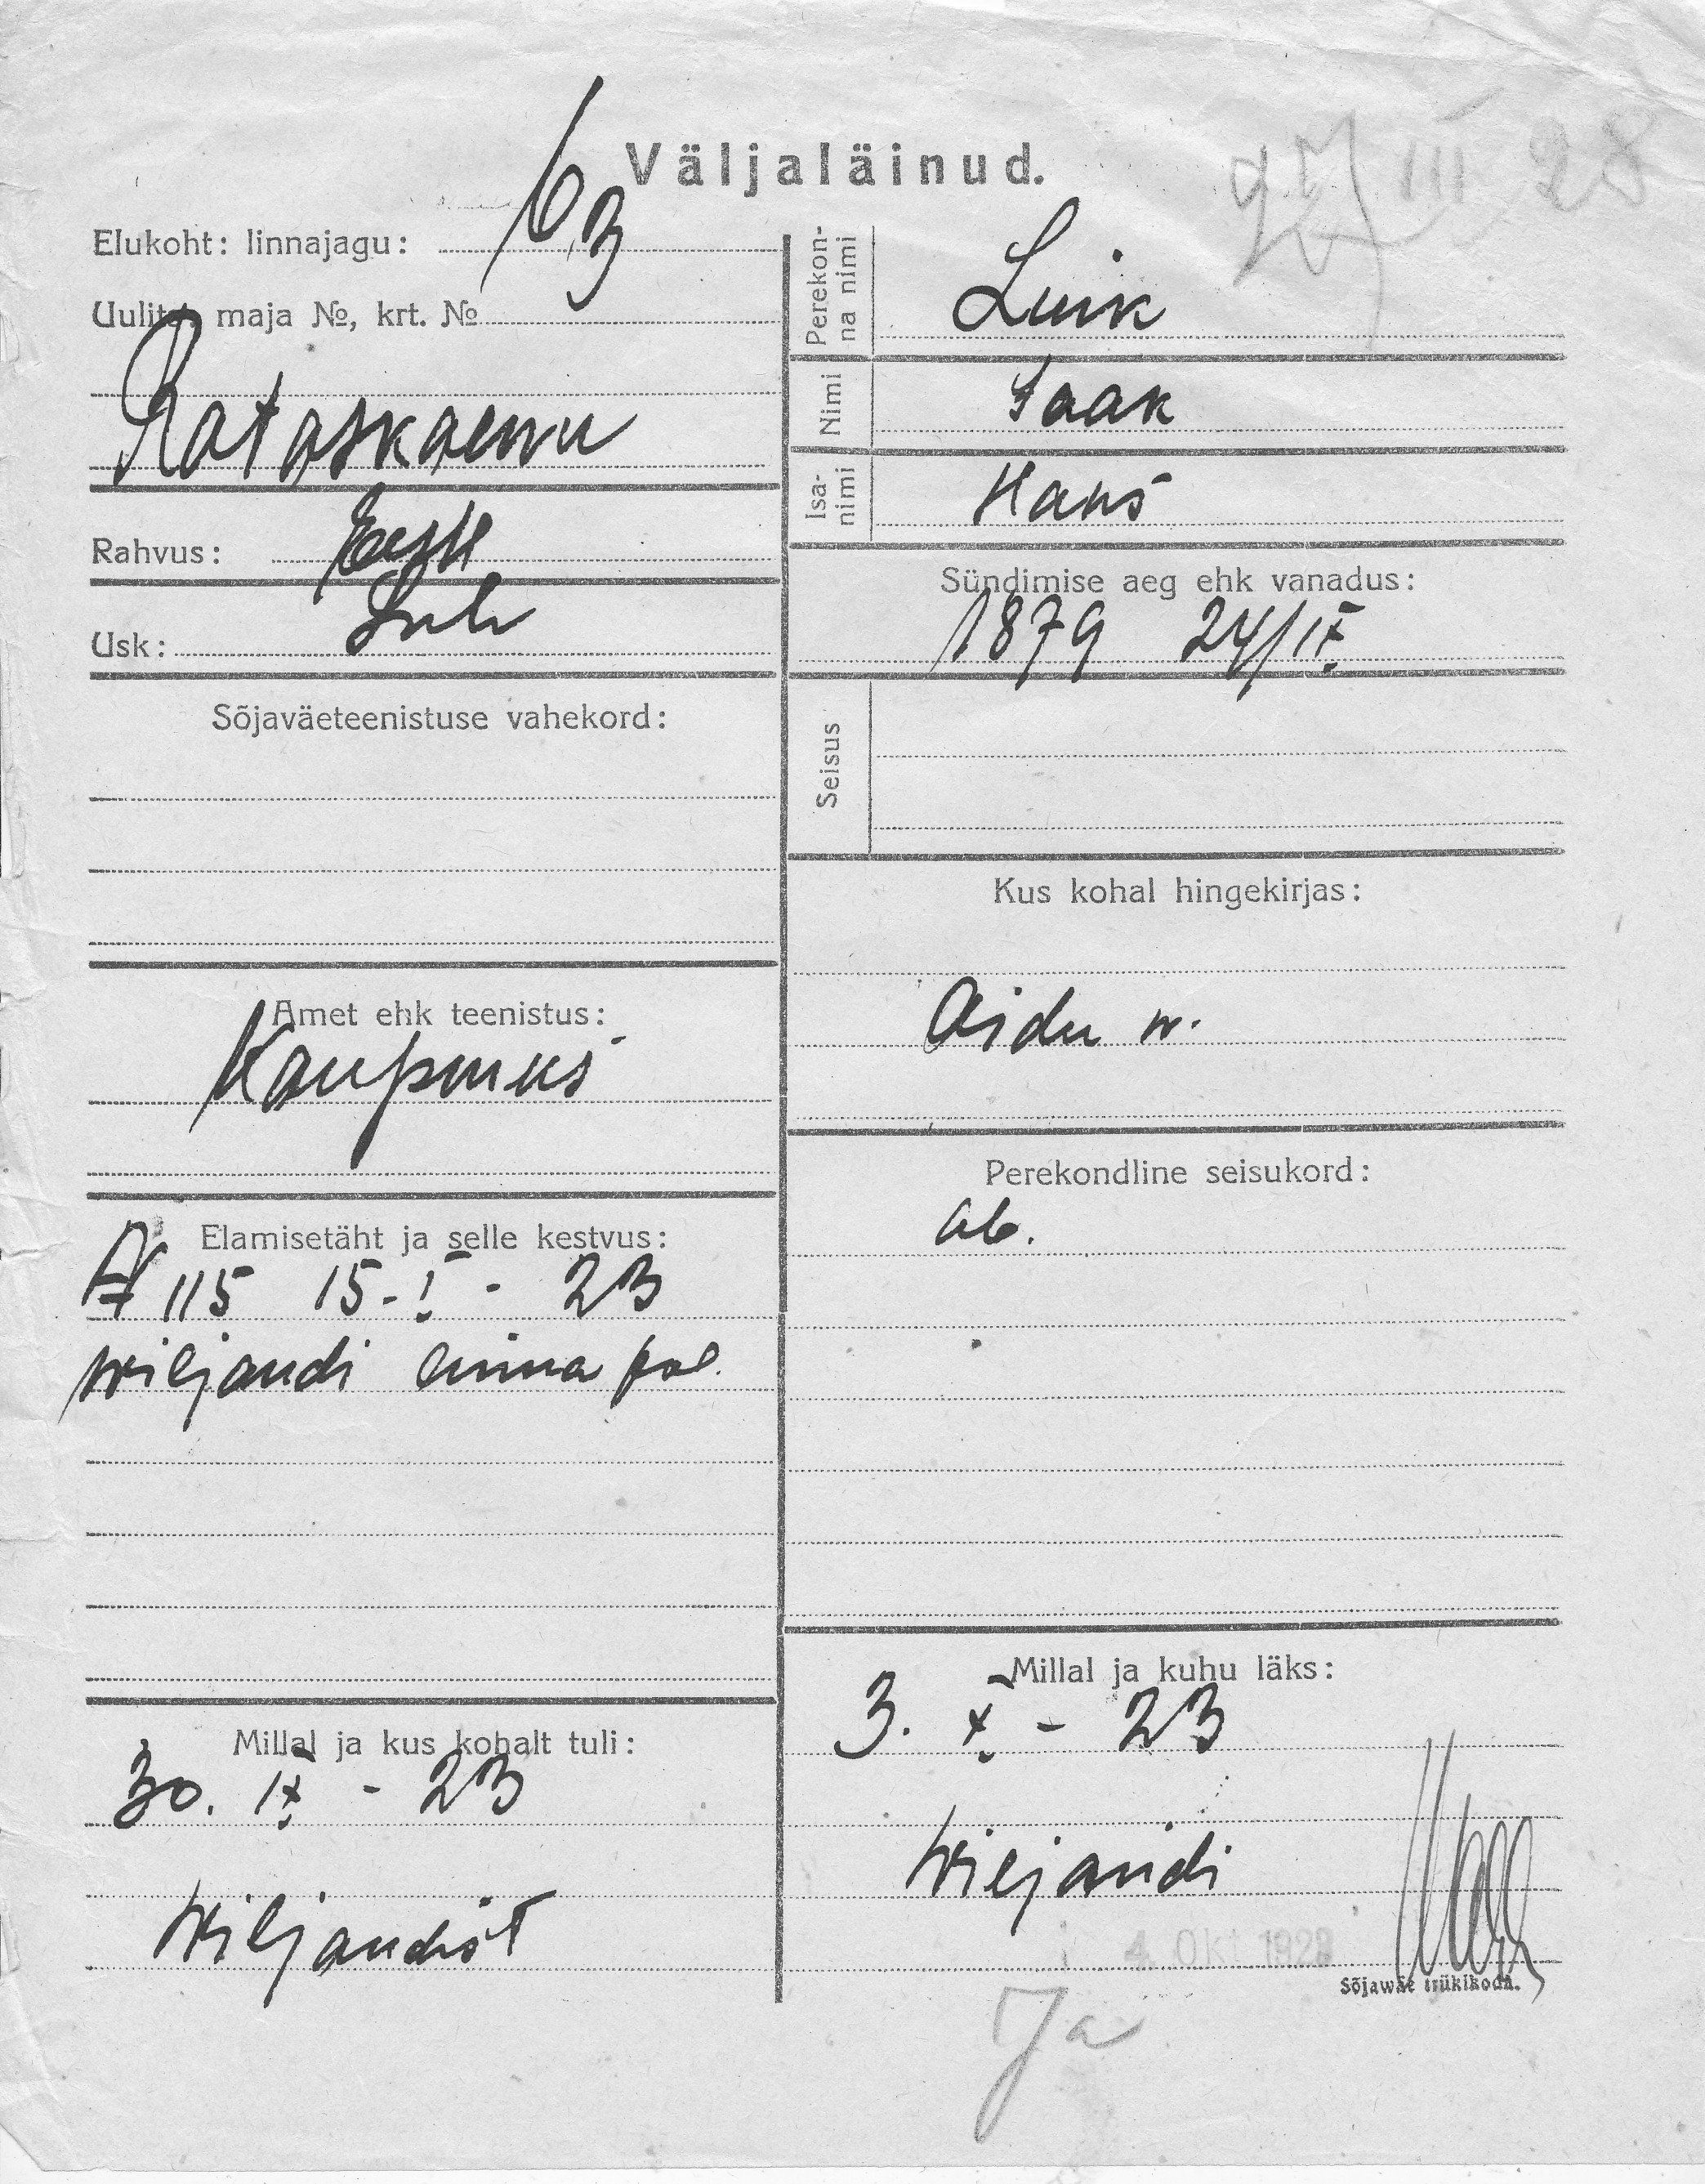 Väljaläinud.
III 28
Elukoht: linnajagu:
Uulits, maja №, krt. №
Rataskaewu
Rahvus: Eesti
Usk: Luth
Sõjaväeteenistuse vahekord:
Amet ehk teenistus:
Kaupmees
Elamisetäht ja selle kestvus:
115 15-I - 23
Wiljandi linna pol.
Millal ja kus kohalt tuli:
30. IX - 23
Wiljandist
Perekonna nimi Luik
Nimi Jaak
Isanimi Hans
Sündimise aeg ehk vanadus:
1879 24/IX
Seisus
Kus kohal hingekirjas:
Aidu w.
Perekondline seisukord:
ab.
Millal ja kuhu läks:
3. X - 23
Wiljandi
4. Okt 1923
Sõjawäe trükikoda.
Ja